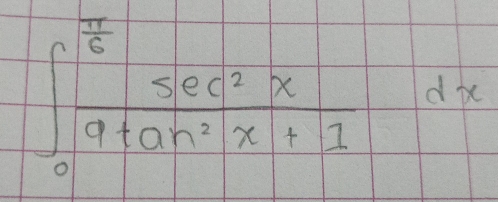 ∫₀^{π/6} \frac{sec² x}{9tan² x + 1} dx